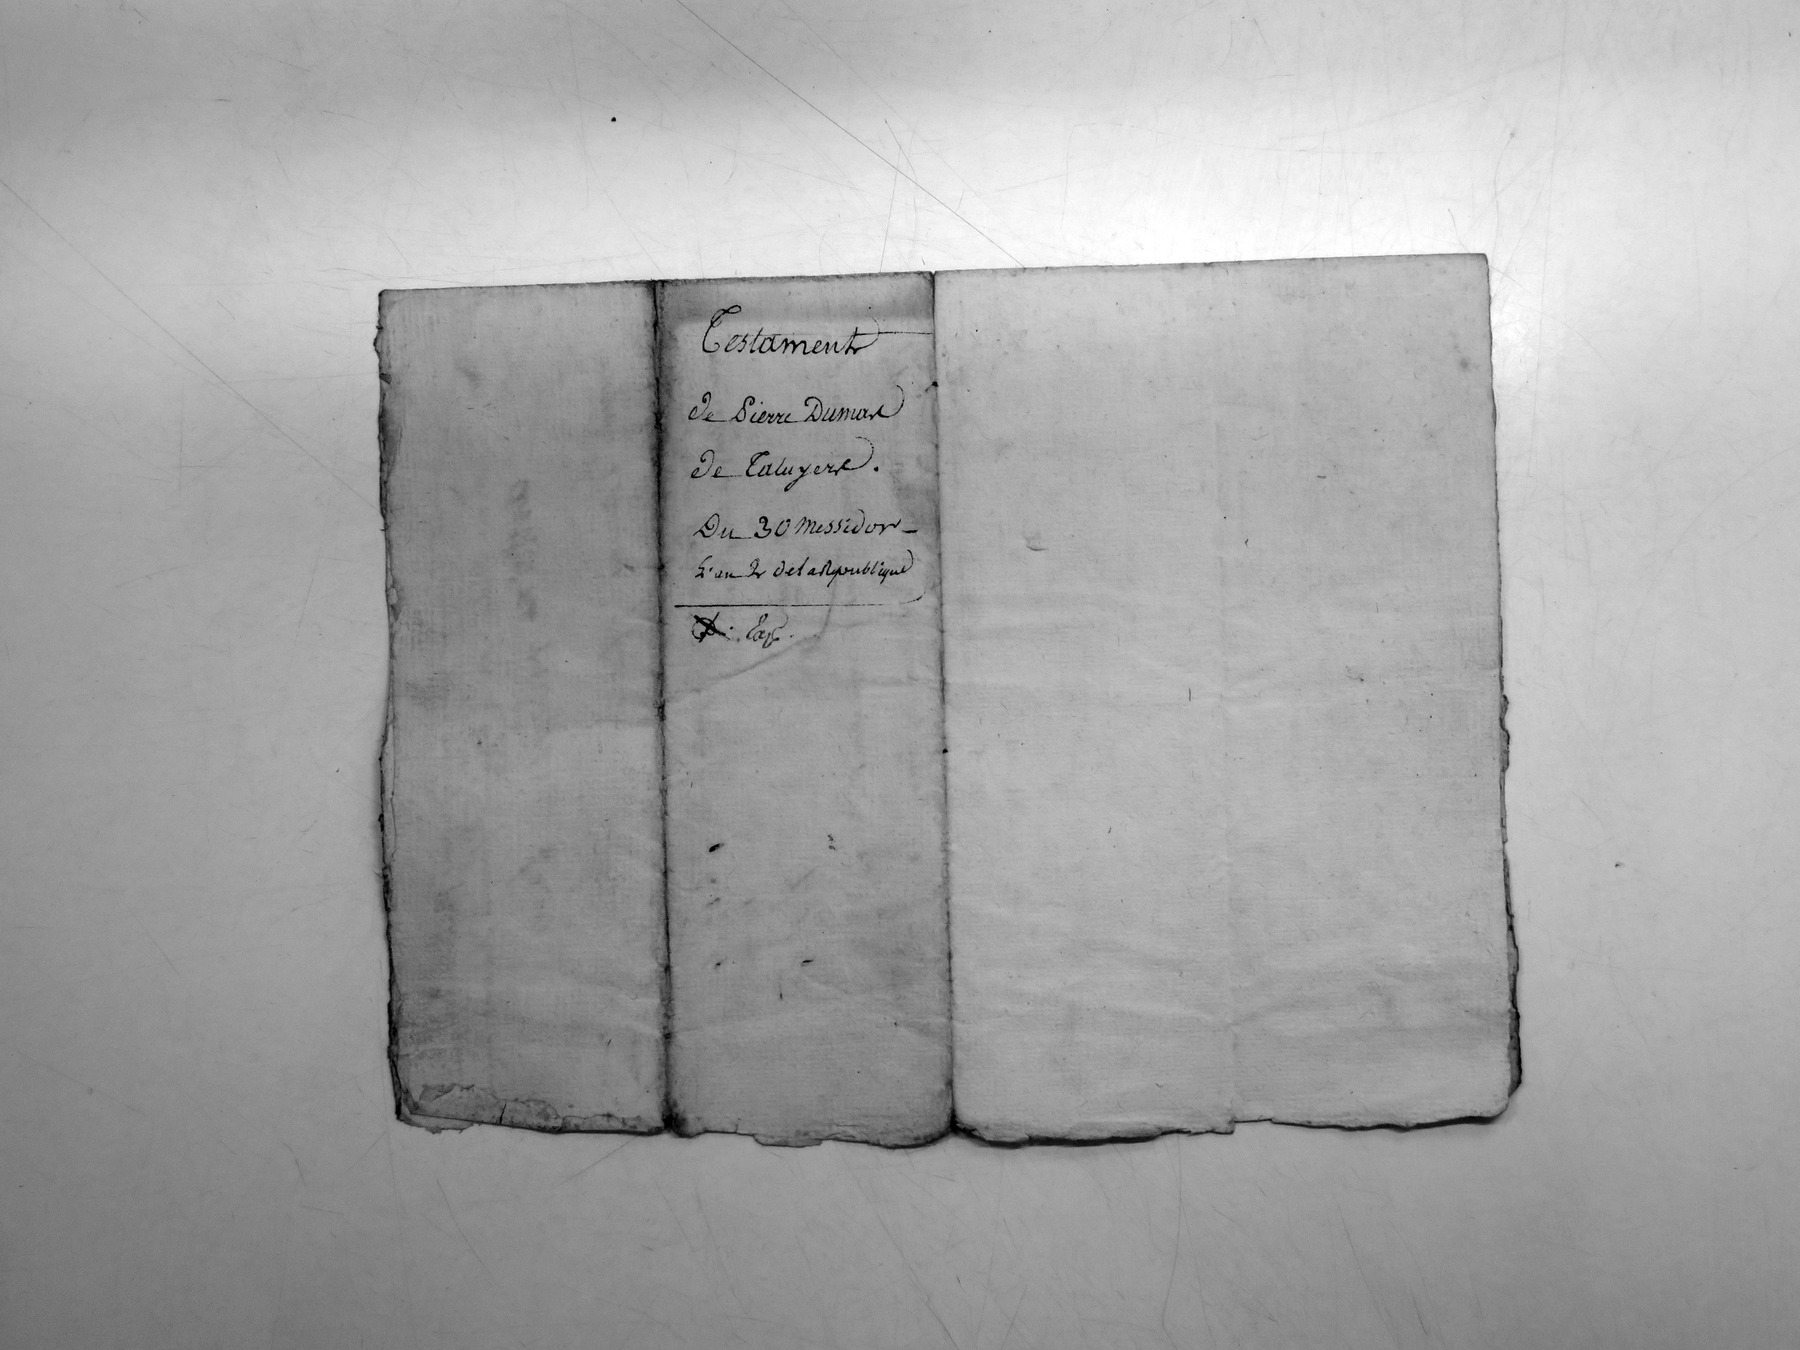 Testament
de Pierre Dumas
de Taluyers.
Du 30 Messidor
L'an 2e de la Republique
Exp.